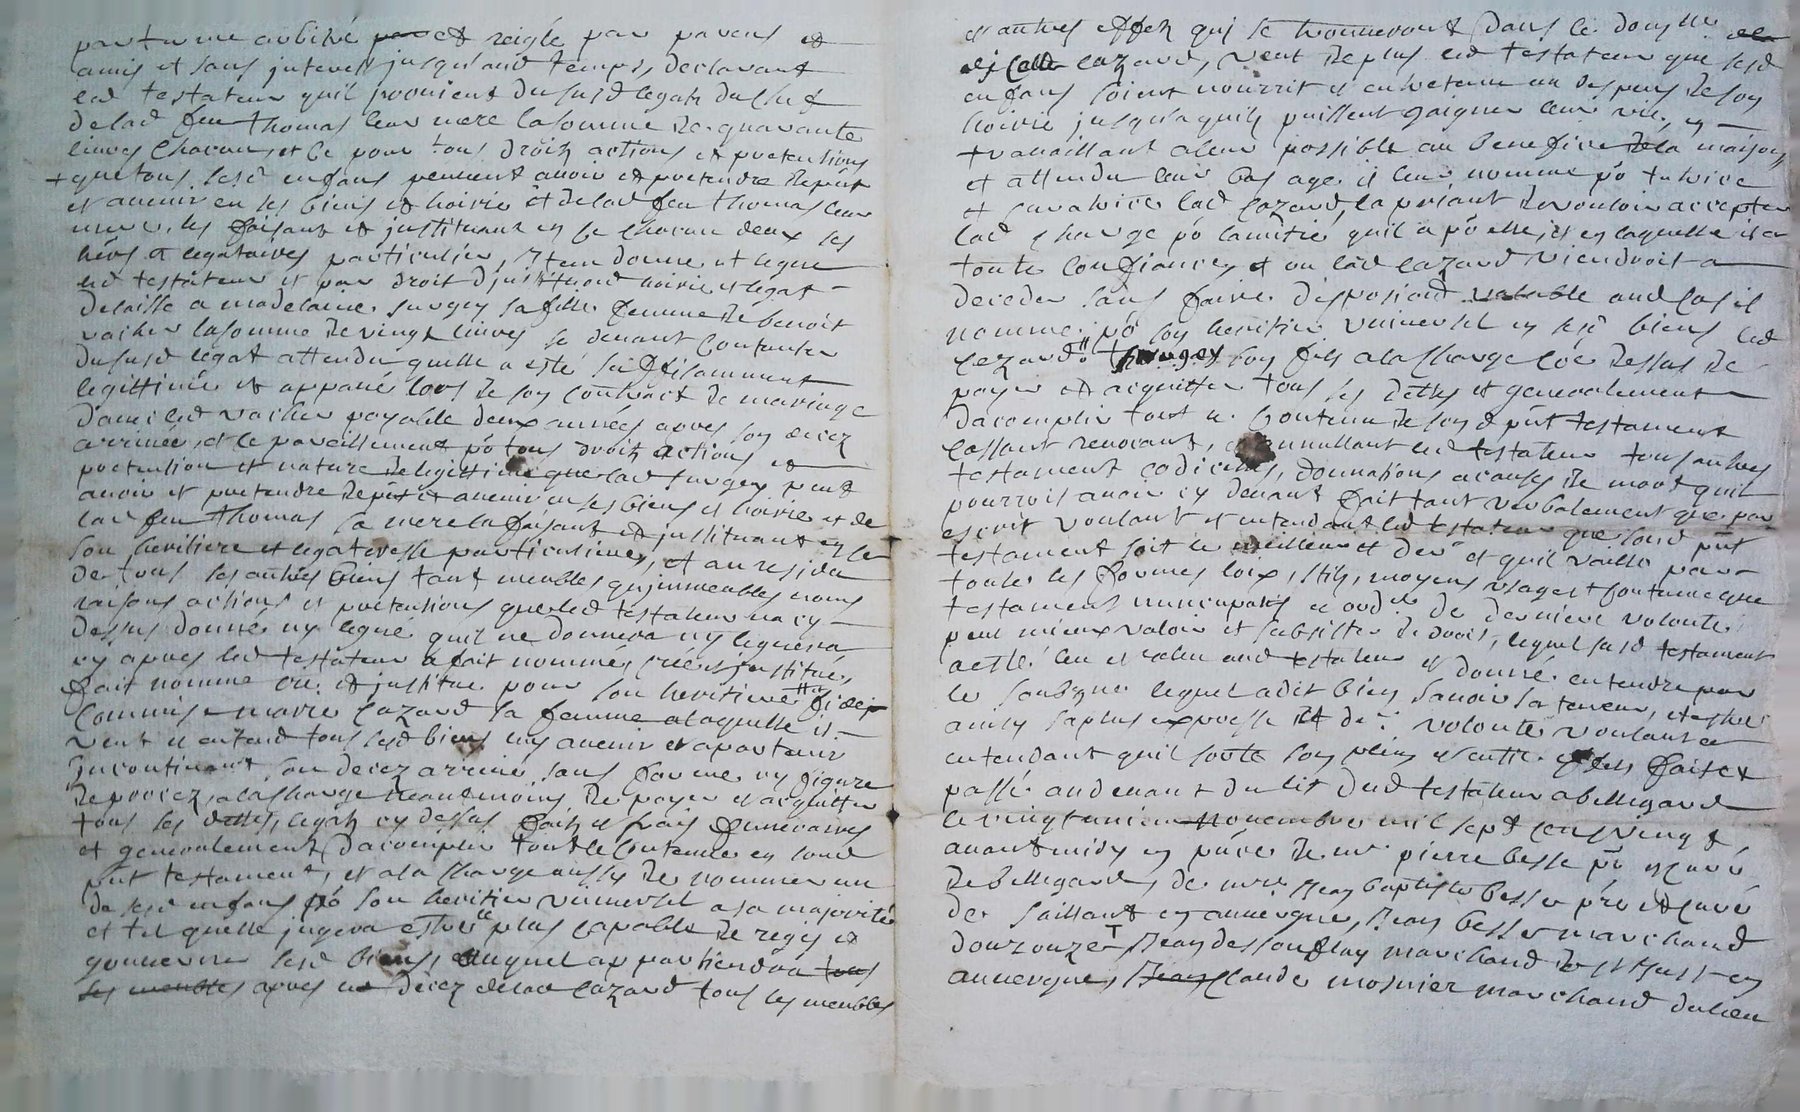 partume arbitré et reiglé par parens et
amis et sans interest jusqu'aud temps, declarant
led testateur quil provient du susd legat du chef
delad feu thomas leur mere la somme de quarante
livres chacun, et ce pour tous droitz actions et pretentions
+ que tous lesd enfans peuvent avoir et pretendre de pñt
et avenir en ses biens et hoirie et delad feu thomas leur
mere, les faisant et instituant en ce chacun deux ses
hērs et legataires particuliers, Item donne et legue
led testateur et par droit d'institu͠o͠n d hoirie et legat
delaisse a madelaine surgey sa fille femme de benoit
vacher la somme de vingt livres se devant contanter
du susd legat attendu quelle a esté suffisamment
legittimée et appanée lors de son contract de mariage
d'avec led vacher payable deux années apres son decez
arrivée, et ce pareillement pō tous droitz actions et
pretention et nature de legittime que lad surgey peut
avoir et pretendre de pñt et avenir en ses biens et hoirie et de
lad feu thomas sa mere la faisant et instituant en ce
son heritiere et legateresse particuliere, et au residu
de tous ses autres biens tant meubles qu'immeubles noms
raisons actions et pretentions que led testateur na cy
dessus donné ny legué quil ne donnera ny leguera
cy apres led testateur a fait nommé, créé et institué,
fait nomme crée et institue pour son heritiere fidei
commise marie cazard sa femme a laquelle il
veut et entend tous sesd biens luy avenir et apartenir
incontinant son decez arrivé sans forme ny figure
de procez, a la charge neantmoins de payer et acquitter
tous ses dettes, legatz cy dessus faitz et frais funeraires
et generalement d'acomplir tout le contenu en sond
pñt testament, et a la charge aussy de nommer un
de sesd enfans pō son heritier universel a sa majorité
et tel quelle jugera estre le plus capable de regir et
gouverner sesd biens, auquel appartiendra tous
ses meubles apres le decez delad cazard tous les meubles
et autres effetz qui se trouveront dans le domlle de
lad cazard, veut de plus led testateur que sesd
enfans soient nourrit et entretenu au despens de son
hoirie jusqu'a quils puissent gaigner leur vie, en
travaillant a leur possible au benefice de la maison
et attendu leur bas age il leur nomme pō tutrice
et curatrice lad cazard, la priant de vouloir accepter
lad charge pō lamitié quil a pō elle, et en laquelle il a
toute confiance, et ou lad cazard viendroit a
deceder sans faire disposi͠o͠n valable aud cas il
nomme pō son heritier universel en sesd biens led
cezard surgey son fils a la charge cōe dessus de
payer et acquitter tous ses dettes et generalement
dacomplir tout le contenu de sond pñt testament
cassant revocant, et annullant led testateur tous autres
testament codiciles, donnations a causes de mort quil
pourroit avoir cy devant fait tant verbalement que par
escrit voulant et entendant led testateur que sond pñt
testament soit le meilleur et der et quil vaille par
toutes les formes loix, stils, moyens usages et coutume que
testament nuncupatifs et ordre de derniere volonté
peut mieux valoir et subsister de droit, lequel susd testament
a esté leu et releu aud testateur et donné entendre par
le soubzné lequel a dit bien savoir sa teneur, et estre
ainsy sa plus expresse et der volonté voulant et
entendant quil sorte son plein et entier effets fait et
passé au devant du lit dud testateur a bellegarde
le vingtunieme novembre mil sept cens vingt
avant midy en pñce de mr pierre besse pō et curé
de bellegarde, de mre Jean baptiste besse pre et curé
de saillant en auvergne, Jean besse marchand
douzouze Jean dessouflay marchand de st Just en
auvergne, claude mosnier marchand dulieu